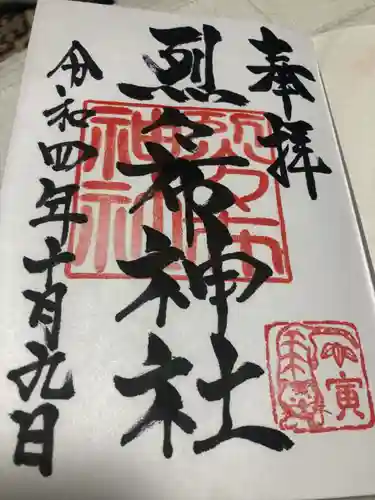 奉拝
烈々布神社
令和四年十月九日
烈々布神社
寅